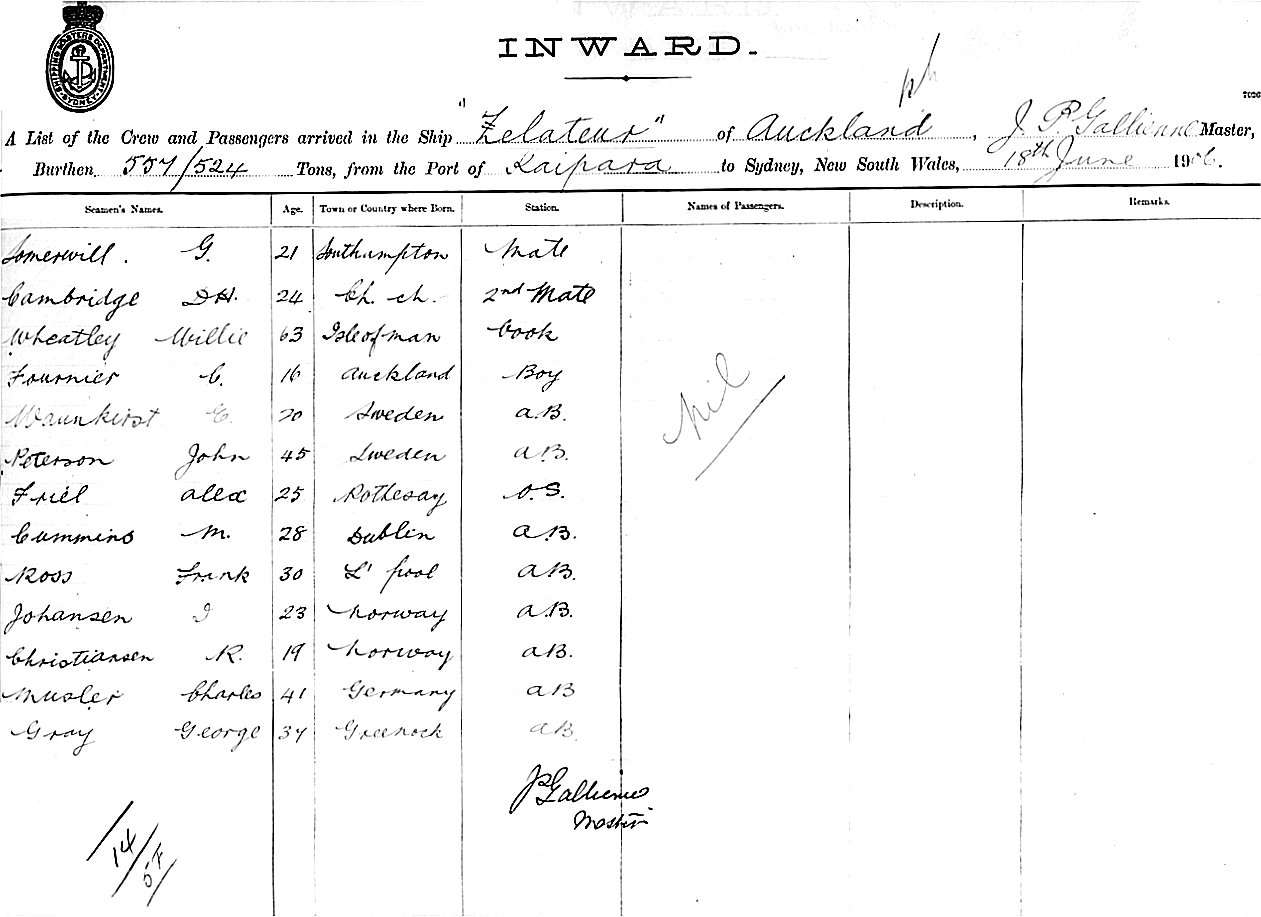 SHIPPING MASTERS DEPARTMENT SYDNEY
INWARD.
A List of the Crew and Passengers arrived in the Ship "Zelateur" of Auckland, J P Gallienne Master,
Burthen 557/524 Tons, from the Port of Kaipara to Sydney, New South Wales, 18th June 1906.
Seamen's Names. Age. Town or Country where Born. Station. Names of Passengers. Description. Remarks.
Somerwill. G. 21 Southampton Mate
Cambridge DH. 24 Ch. ch. 2nd Mate
Wheatley Willie 63 Isle of man Cook
Fournier C. 16 Auckland Boy
Waunkirst C. 20 Sweden A.B.
Peterson John 45 Sweden A.B.
Friel Alex 25 Rothesay O.S.
Cummins M. 28 Dublin A.B.
Ross Frank 30 L' pool A.B.
Johansen I 23 Norway A.B.
Christiansen R. 19 Norway A.B.
Musler Charles 41 Germany A.B
Gray George 37 Greenock A.B.
Nil
JP Gallienne
Master
14/5F